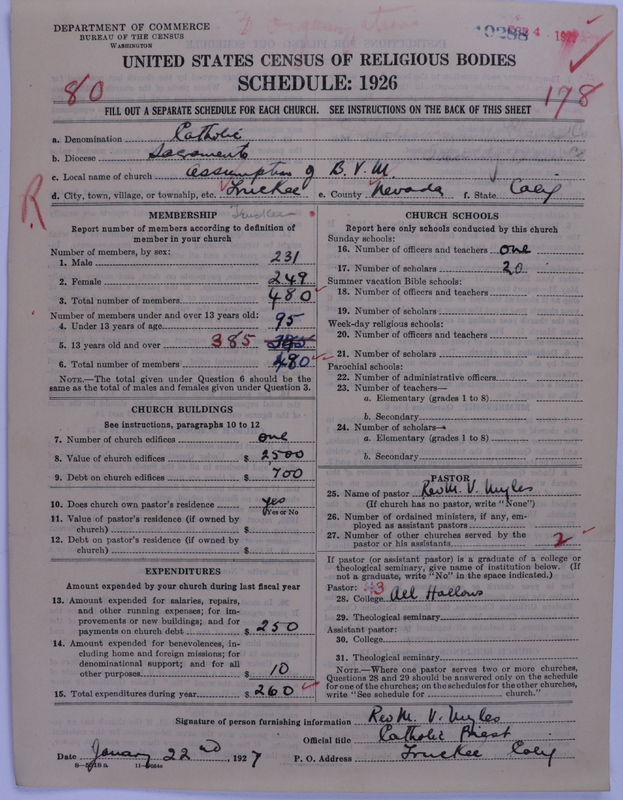 DEPARTMENT OF COMMERCE
BUREAU OF THE CENSUS
WASHINGTON
19288 4 192
UNITED STATES CENSUS OF RELIGIOUS BODIES
SCHEDULE: 1926
80
178
FILL OUT A SEPARATE SCHEDULE FOR EACH CHURCH. SEE INSTRUCTIONS ON THE BACK OF THIS SHEET
a. Denomination Catholic
b. Diocese Sacramento
c. Local name of church Assumption of B. V. M.
d. City, town, village, or township, etc. Truckee e. County Nevada f. State Calif
R
MEMBERSHIP Truckee
Report number of members according to definition of
member in your church
Number of members, by sex:
1. Male 231
2. Female 249
3. Total number of members 480
Number of members under and over 13 years old:
4. Under 13 years of age 95
5. 13 years old and over 385 385
6. Total number of members 480
NOTE.—The total given under Question 6 should be
same as the total of males and females given under Question 3.
CHURCH BUILDINGS
See instructions, paragraphs 10 to 12
7. Number of church edifices one
8. Value of church edifices $ 2500
9. Debt on church edifices $ 700
10. Does church own pastor's residence yes
Yes or No
11. Value of pastor's residence (if owned by
church) $
12. Debt on pastor's residence (if owned by
church) $
EXPENDITURES
Amount expended by your church during last fiscal year
13. Amount expended for salaries, repairs,
and other running expenses; for im-
provements or new buildings; and for
payments on church debt $ 250
14. Amount expended for benevolences, in-
cluding home and foreign missions; for
denominational support; and for all
other purposes $ 10
15. Total expenditures during year $ 260
CHURCH SCHOOLS
Report here only schools conducted by this church
Sunday schools:
16. Number of officers and teachers one
17. Number of scholars 20
Summer vacation Bible schools:
18. Number of officers and teachers
19. Number of scholars
Week-day religious schools:
20. Number of officers and teachers
21. Number of scholars
Parochial schools:
22. Number of administrative officers
23. Number of teachers—
a. Elementary (grades 1 to 8)
b. Secondary
24. Number of scholars—
a. Elementary (grades 1 to 8)
b. Secondary
PASTOR
25. Name of pastor Rev M. V. Myles
(If church has no pastor, write "None")
26. Number of ordained ministers, if any, em-
ployed as assistant pastors
27. Number of other churches served by the
pastor or his assistants 2
If pastor (or assistant pastor) is a graduate of a college or
theological seminary, give name of institution below. (If
not a graduate, write "No" in the space indicated.)
Pastor: 3
28. College All Hallows
29. Theological seminary
Assistant pastor:
30. College
31. Theological seminary
NOTE.—Where one pastor serves two or more churches,
Questions 28 and 29 should be answered only on the schedule
for one of the churches; on the schedules for the other churches,
write "See schedule for church."
Signature of person furnishing information Rev M. V. Myles
Official title Catholic Priest
Date January 22nd, 1927 P. O. Address Truckee Calif